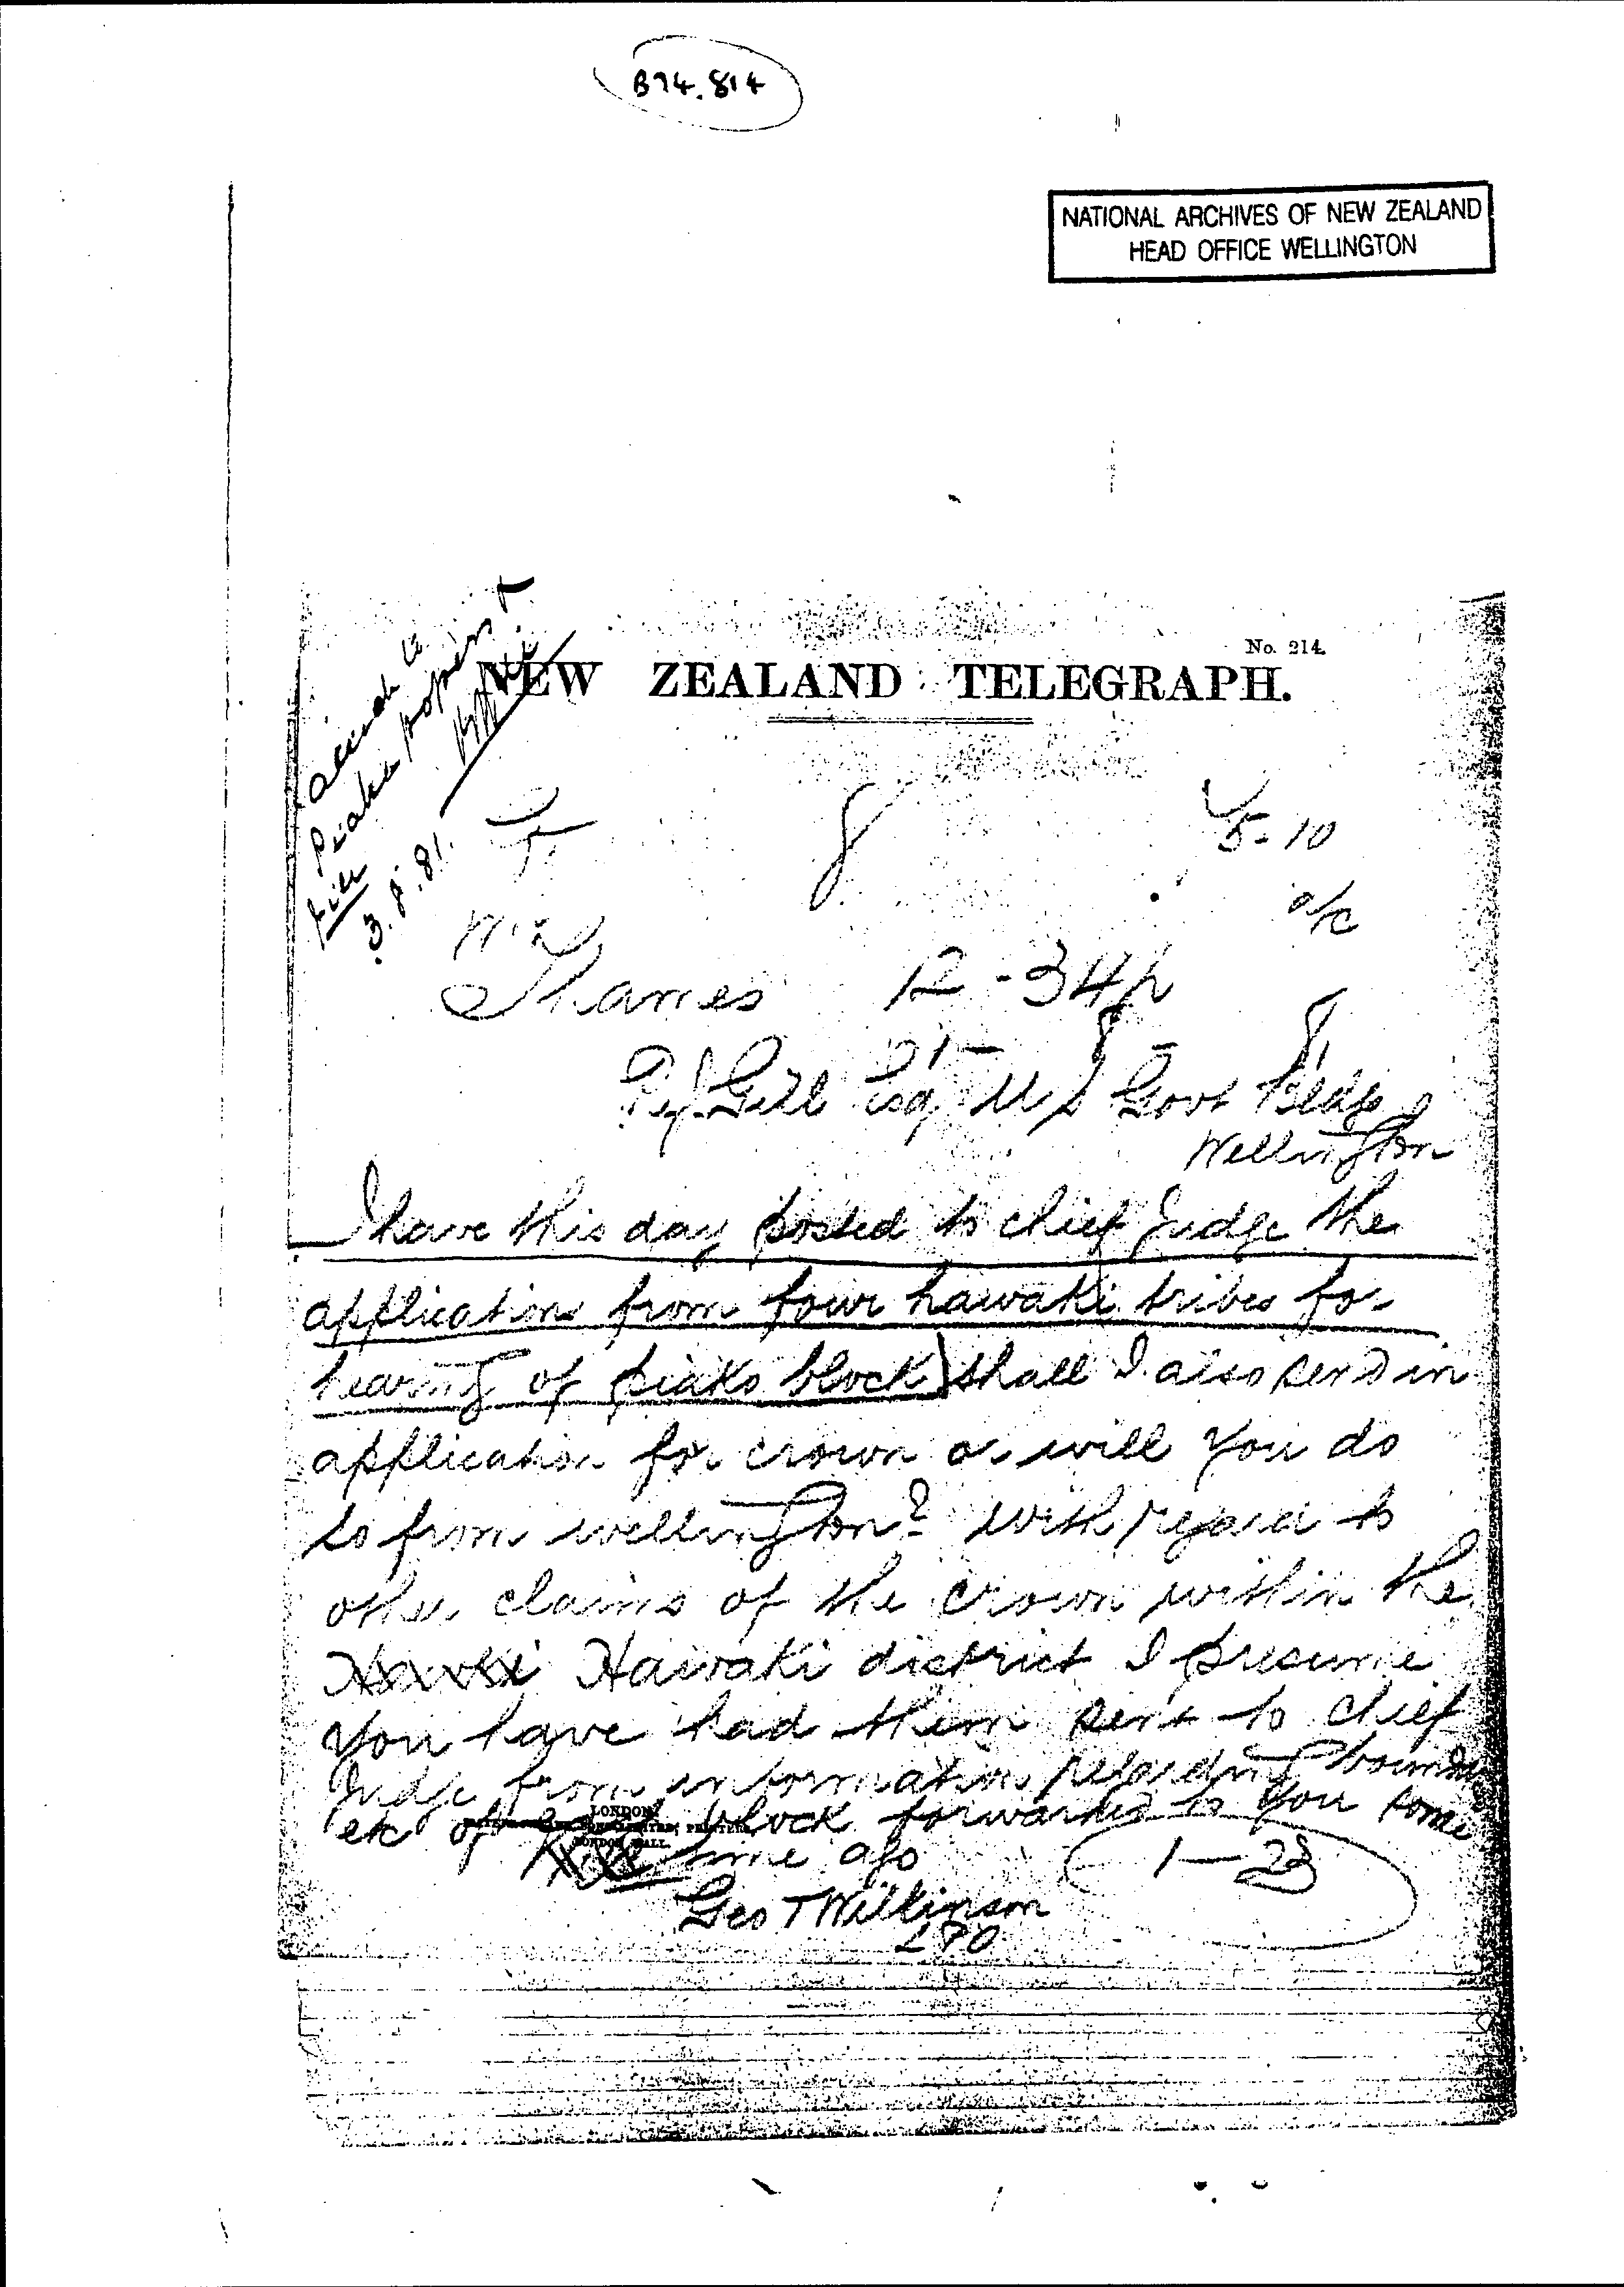 B74.814
NATIONAL ARCHIVES OF NEW ZEALAND
HEAD OFFICE WELLINGTON
No. 214.
NEW ZEALAND TELEGRAPH.
Piako papers &
file
3.8.81.
8
5-10
o/c
Thames 12-34p
Gill Esq U S Govt Bldgs
Wellington
I have this day posted to chief Judge the
applications from four hawaki tribes for
hearing of piako block) shall I also send in
application for crown or will you do
so from wellington? with regard to
other claims of the crown within the
Hawaki district I presume
you have had them sent to chief
Judge from information regarding
etc of block forwarded to you some
LONDON
time ago
1-23
Geo T Wilkinson
LPO